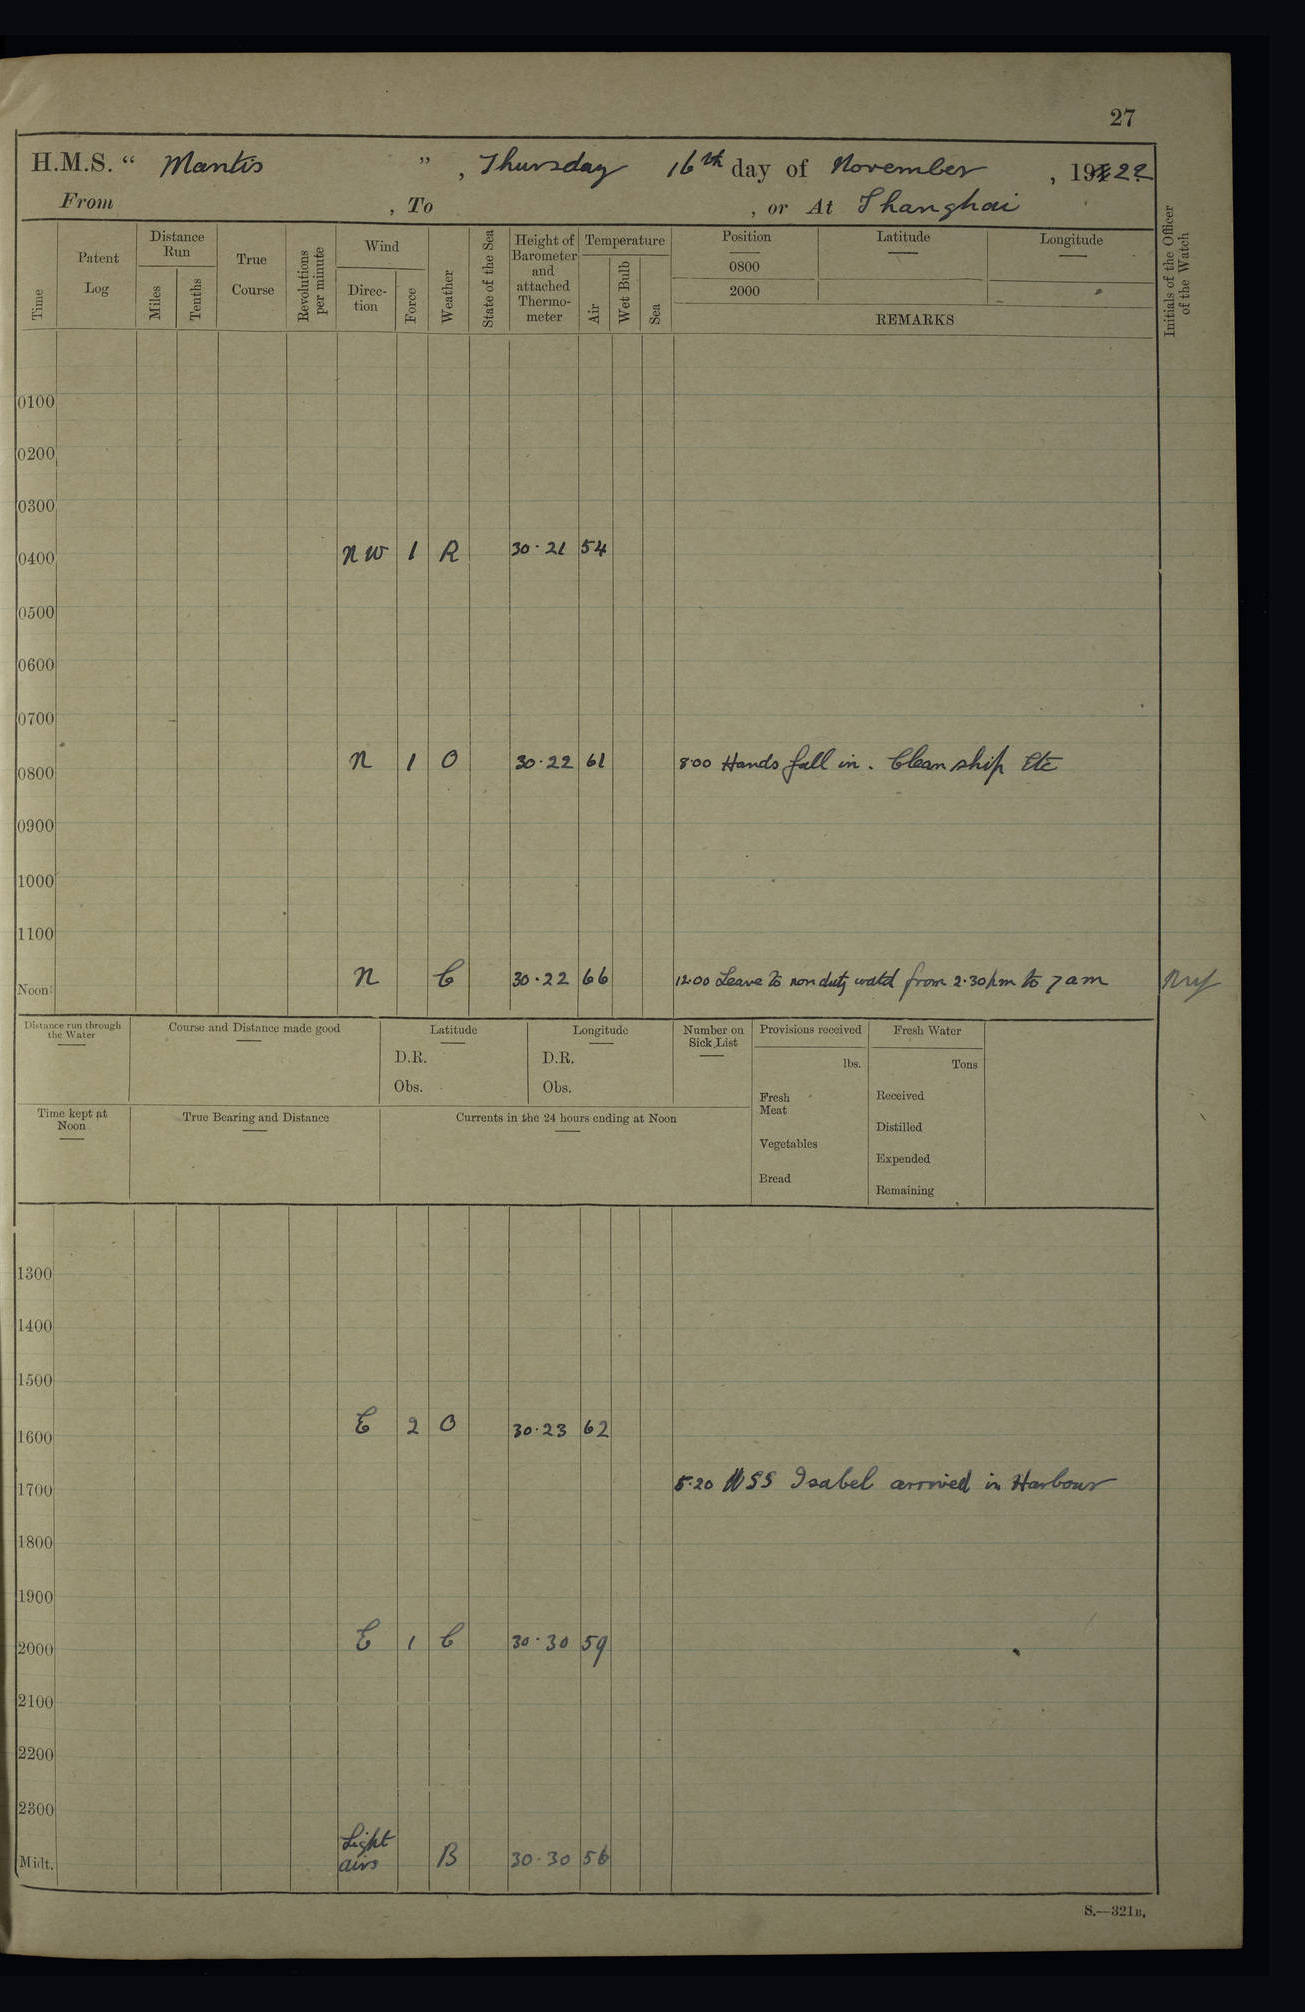 27
H.M.S. “ Mantis ”, Thursday 16th day of November, 1922
From , To , or At Shanghai
Time
Patent Log
Distance Run
Miles
Tenths
True Course
Revolutions per minute
Wind
Direc-tion
Force
Weather
State of the Sea
Height of Barometer and attached Thermo-meter
Temperature
Air
Wet Bulb
Sea
Position
Latitude
Longitude
0800
2000
REMARKS
Initials of the Officer of the Watch
0100
0200
0300
0400 NW 1 R 30.21 54
0500
0600
0700
0800 N 1 O 30.22 61 8.00 Hands fall in. Clean ship Etc
0900
1000
1100
Noon N C 30.22 66 12.00 Leave to non duty watch from 2.30pm to 7am
Distance run through the Water
Course and Distance made good
Latitude
D.R.
Obs.
Longitude
D.R.
Obs.
Number on Sick List
Provisions received
lbs.
Fresh Meat
Vegetables
Bread
Fresh Water
Tons
Received
Distilled
Expended
Remaining
Time kept at Noon
True Bearing and Distance
Currents in the 24 hours ending at Noon
1300
1400
1500
1600 E 2 O 30.23 62
1700 5.20 USS Isabel arrived in Harbour
1800
1900
2000 E 1 C 30.30 59
2100
2200
2300
Midt. Light airs B 30.30 56
S.—321B.